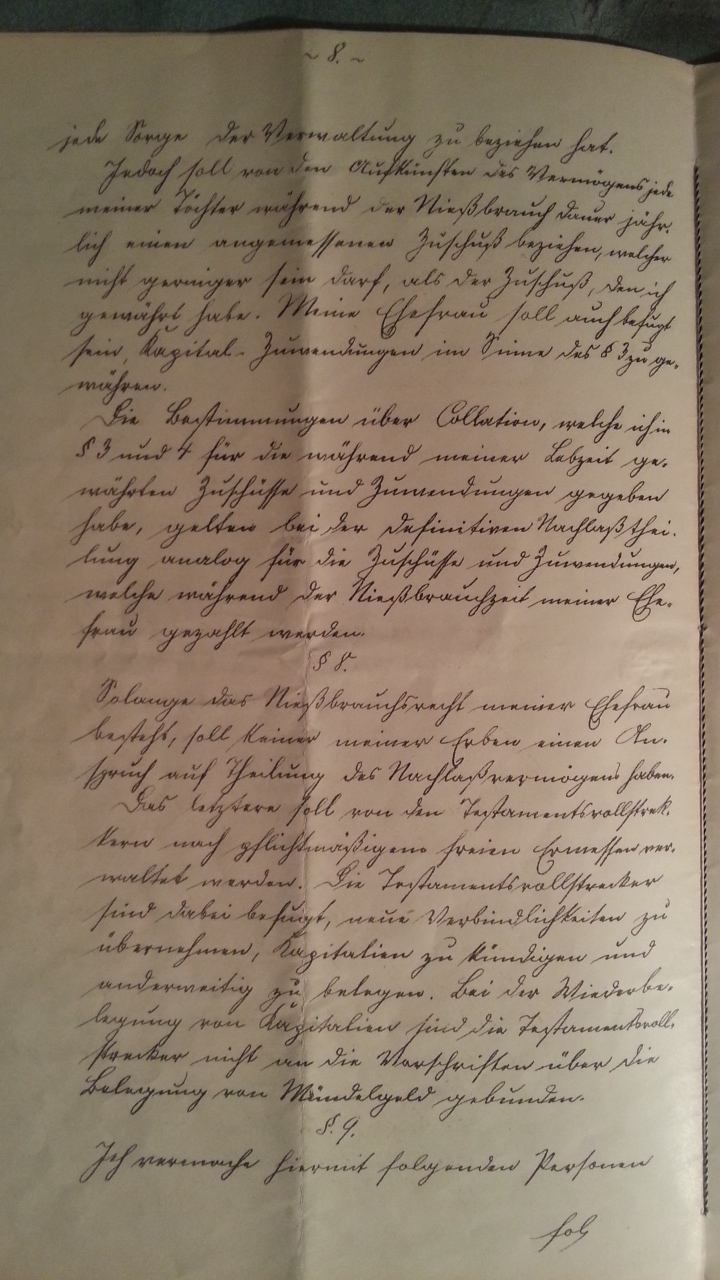 ~ 8. ~
jede Sorge der Verwaltung zu beziehen hat.
Jedoch soll von den Aufkünften des Vermögens jede
meiner Töchter während der Nießbrauch dauer jähr-
lich einen angemessenen Zuschuß beziehen, welcher
nicht geringer sein darf, als der Zuschuß, den ich
gewährt habe. Meine Ehefrau soll auch befugt
sein, Kapital-Zuwendungen im Sinne des § 3 zu ge-
währen.
Die Bestimmungen über Collation, welche ich in
§ 3 und 4 für die während meiner Lebzeit ge-
währten Zuschüsse und Zuwendungen gegeben
habe, gelten bei der definitiven Nachlaßthei-
lung analog für die Zuschüsse und Zuwendungen,
welche während der Nießbrauchzeit meiner Ehe-
frau gezahlt werden.
§ 8.
Solange das Nießbrauchsrecht meiner Ehefrau
besteht, soll keiner meiner Erben einen An-
spruch auf Theilung des Nachlaßvermögens haben.
Das letztere soll von den Testamentsvollstrek-
kern nach pflichtmäßigem freien Ermessen ver-
waltet werden. Die Testamentsvollstrecker
sind dabei befugt, neue Verbindlichkeiten zu
übernehmen, Kapitalien zu kündigen und
anderweitig zu belegen. Bei der Wiederbe-
legung von Kapitalien sind die Testamentsvoll-
strecker nicht an die Vorschriften über die
Belegung von Mündelgeld gebunden.
§. 9.
Ich vermache hiermit folgenden Personen
fol